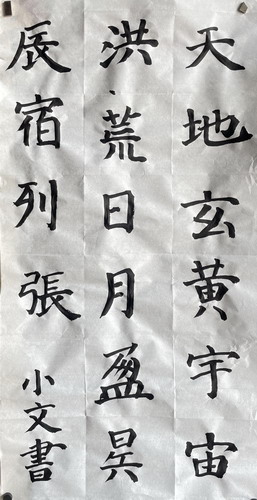 天地玄黄宇宙
洪荒日月盈昃
辰宿列張
小文書